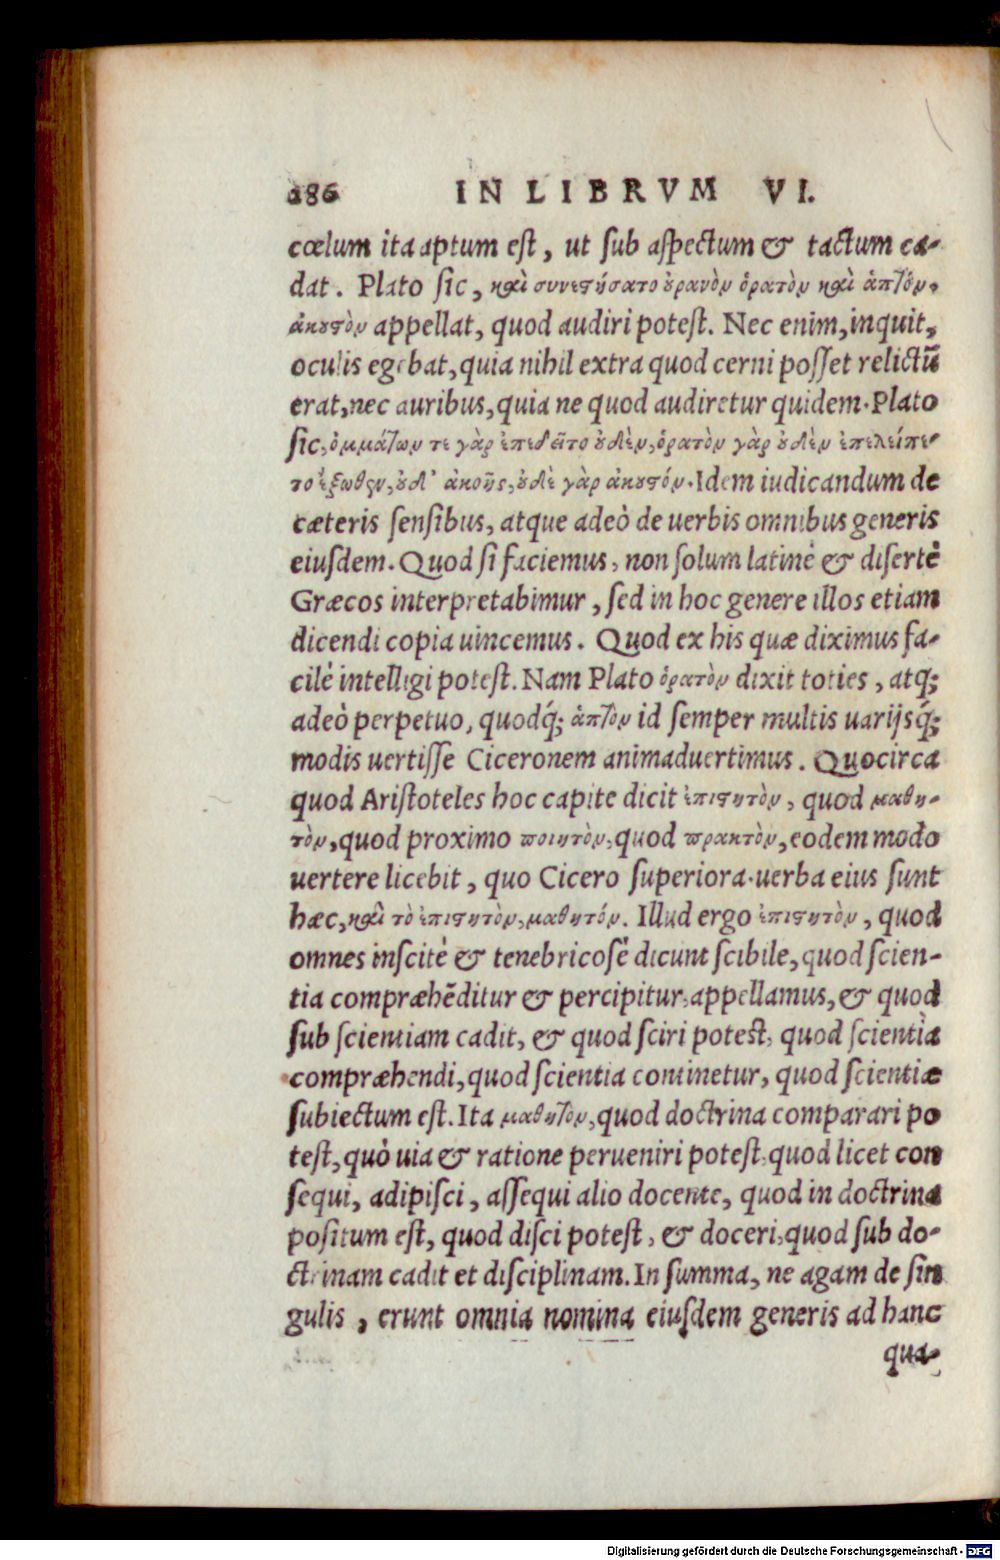 186 IN LIBRVM VI.
cœlum ita aptum eſt, ut ſub aſpectum & tactum ca-
dat. Plato ſic, καὶ συνεστήσατο οὐρανὸν ὁρατὸν καὶ ἁπτόν,
ἀκουστὸν appellat, quod audiri poteſt. Nec enim, inquit,
oculis egebat, quia nihil extra quod cerni poſſet relictū
erat, nec auribus, quia ne quod audiretur quidem. Plato
ſic, ὀμμάτων τε γὰρ ἐπεδεῖτο οὐδὲν, ὁρατὸν γὰρ οὐδὲν ἐπελείπε-
το ἔξωθεν, οὐδ' ἀκοῆς, οὐδὲ γὰρ ἀκουστόν. Idem iudicandum de
cæteris ſenſibus, atque adeò de uerbis omnibus generis
eiuſdem. Quod ſi faciemus, non ſolum latinè & diſertè
Græcos interpretabimur, ſed in hoc genere illos etiam
dicendi copia uincemus. Quod ex his quæ diximus fa-
cilè intelligi poteſt. Nam Plato ὁρατὸν dixit toties, atq;
adeò perpetuo, quodq́; ἁπτὸν id ſemper multis uarijsq́;
modis uertiſſe Ciceronem animaduertimus. Quocirca
quod Ariſtoteles hoc capite dicit ἐπιστητὸν, quod μαθη-
τὸν, quod proximo ποιητὸν, quod πρακτὸν, eodem modo
uertere licebit, quo Cicero ſuperiora. uerba eius ſunt
hæc, καὶ τὸ ἐπιστητὸν, μαθητόν. Illud ergo ἐπιστητὸν, quod
omnes inſcitè & tenebricoſè dicunt ſcibile, quod ſcien-
tia compræhēditur & percipitur, appellamus, & quod
ſub ſcientiam cadit, & quod ſciri poteſt, quod ſcientià
compræhendi, quod ſcientia continetur, quod ſcientiæ
ſubiectum eſt. Ita μαθητὸν, quod doctrina comparari po
teſt, quò uia & ratione perueniri poteſt, quod licet con
ſequi, adipiſci, aſſequi alio docente, quod in doctrina
poſitum eſt, quod diſci poteſt, & doceri, quod ſub do-
ctrinam cadit et diſciplinam. In ſumma, ne agam de ſin
gulis, erunt omnia nomina eiuſdem generis ad hanc
qua-
Digitalisierung gefördert durch die Deutsche Forschungsgemeinschaft - DFG